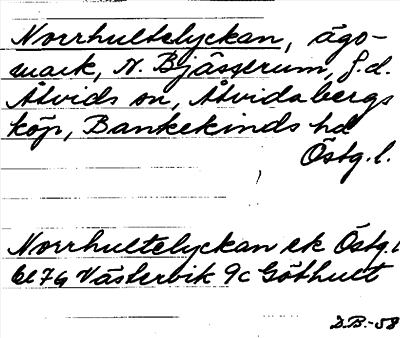 Norrhultelyckan, ägo-
mark, N. Bjässerum, f.d.
Åtvids sn, Åtvidabergs
köp, Bankekinds hd
Östg.l.
Norrhultelyckan ek Östg.l
Bl 76 Västervik 9c Göthult
D.B.-58